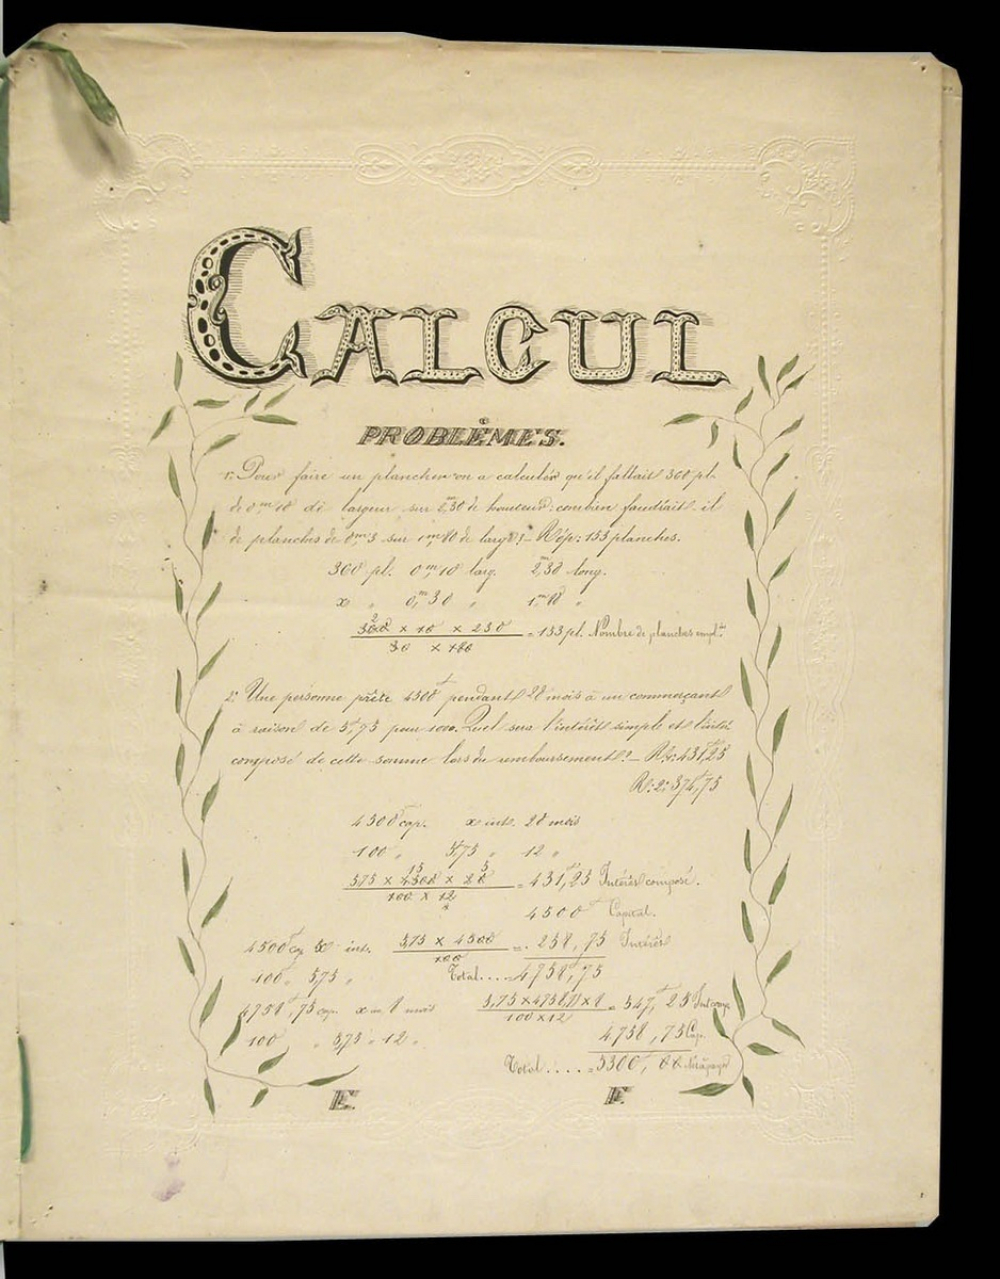 CALCUL
PROBLÊMES.
1º Pour faire un plancher on a calculé qu'il fallait 360 pl.
de 0m,18 de largeur sur 2m,30 de hauteur: combien faudrait il
de planches de 0m,3 sur 1m,80 de large? — Rép: 153 planches.
360 pl. 0m,18 larg. 2m,30 long.
x " 0m,30 " 1m,80 "
360 × 18 × 230 / 30 × 180 = 153 pl. Nombre de planches
2º Une personne prête 4500f pendant 20 mois à un commerçant
à raison de 5f,75 pour 100. Quel sera l'intérêt simple et l'intér.
composé de cette somme lors du remboursement? — R.1: 431f,25
R: 2:
4500 cap. x int. 20 mois
100 " 5,75 " 12 "
575 × 4500 × 20 / 100 × 12 = 431f,25 Intérêt composé.
4500f Capital.
4500 cap x int. 5,75 × 4500 / 100 = 258,75 Intérêt
100 " 5,75 " Total.... 4758f,75
4758f,75 cap. x 8 mois 5,75×4758,75×8 / 100×12 =
100 " 5,75 " 12 " 4758,75 Cap.
Total....
E. F.